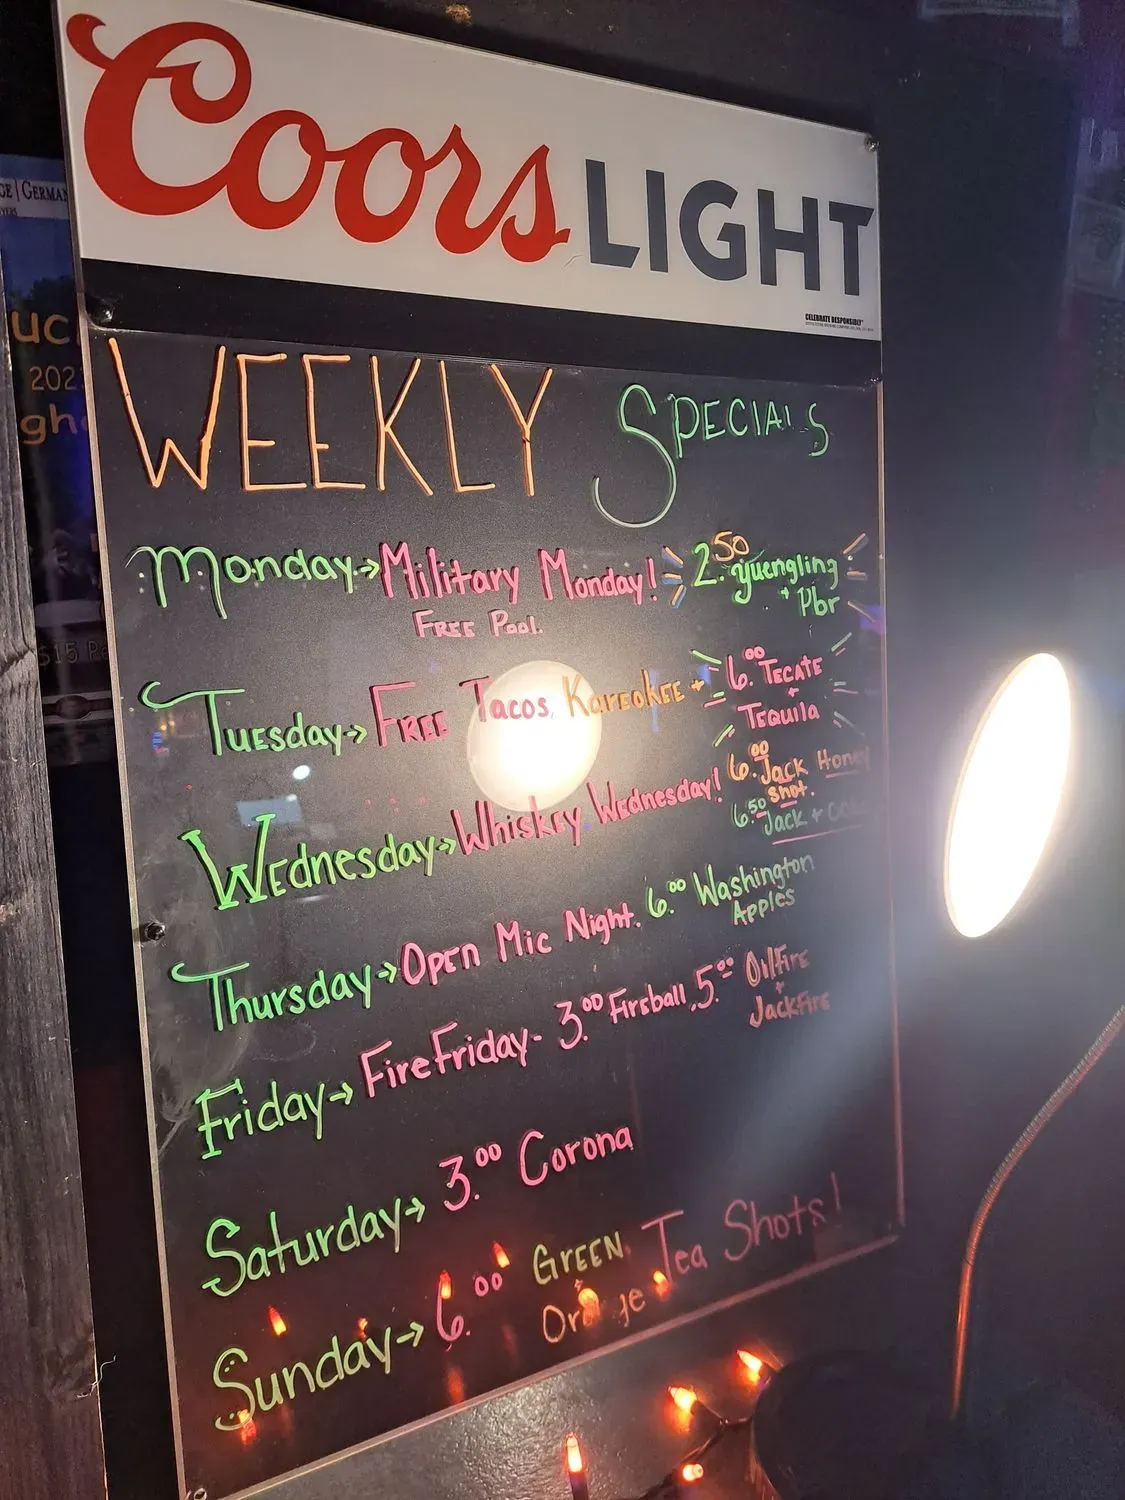 Coors LIGHT
CELEBRATE RESPONSIBLY
WEEKLY SPECIALS
Monday → Military Monday! 2.50 yuengling
FREE Pool. + Pbr
Tuesday → FREE Tacos, Kareokee + 6.00 TECATE
+
TEQUILA
Wednesday → Whiskey Wednesday! 6.00 Jack Honey
Shot.
6.50 Jack +
Thursday → OPEN Mic Night. 6.00 Washington
Apples
Friday → Fire Friday - 3.00 Firsball, 5.00 OilFire
+
JackFire
Saturday → 3.00 Corona
Sunday → 6.00 GREEN Tea Shots!
+
GERMAN
202
$15